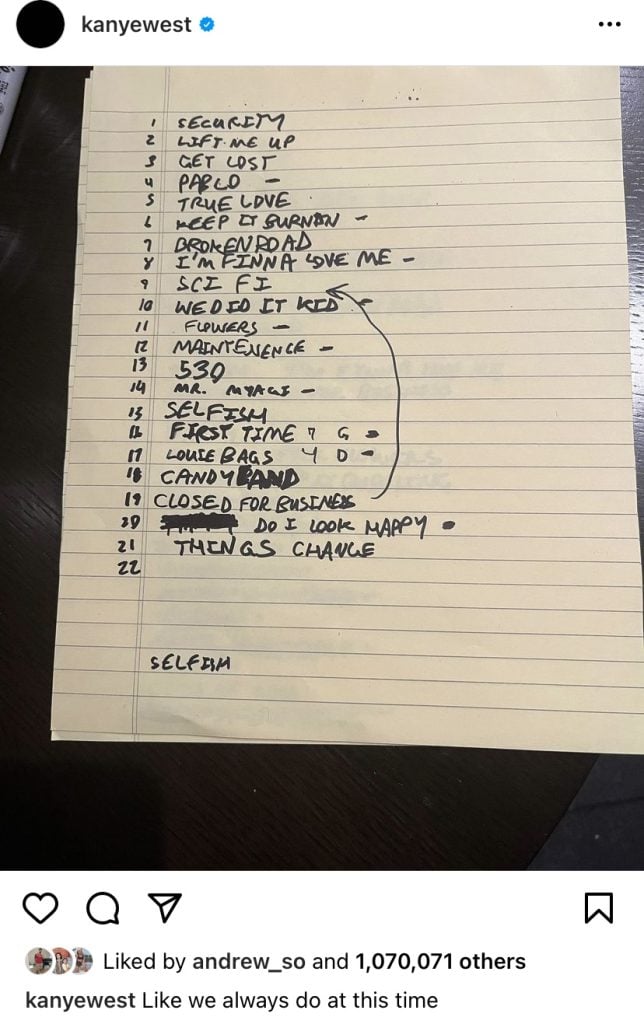 kanyewest
1 SECURITY
2 LIFT ME UP
3 GET LOST
4 PABLO –
5 TRUE LOVE
6 KEEP IT BURNAN –
7 BROKEN ROAD
8 I'M FINNA LOVE ME –
9 SCI FI
10 WE DID IT KID –
11 FLOWERS –
12 MAINTENENCE –
13 530
14 MR. MYAGI –
15 SELFISH
16 FIRST TIME 7 G –
17 LOUIE BAGS 4 D –
18 CANDYLAND
19 CLOSED FOR BUSINESS
20 DO I LOOK HAPPY •
21 THINGS CHANGE
22
SELFISH
Liked by andrew_so and 1,070,071 others
kanyewest Like we always do at this time